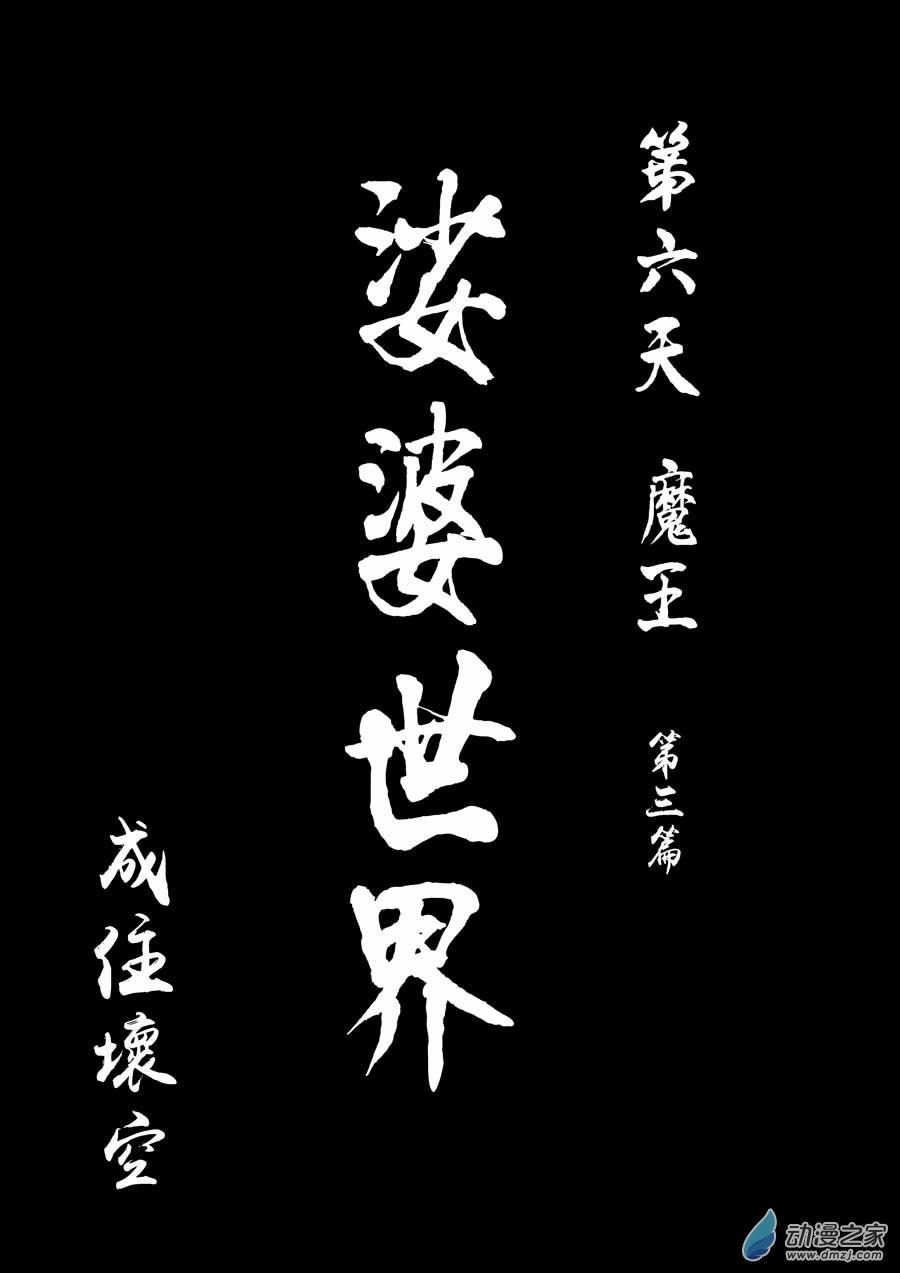 第六天 魔王 第三篇
娑婆世界
成住壞空
动漫之家
www.dmzj.com